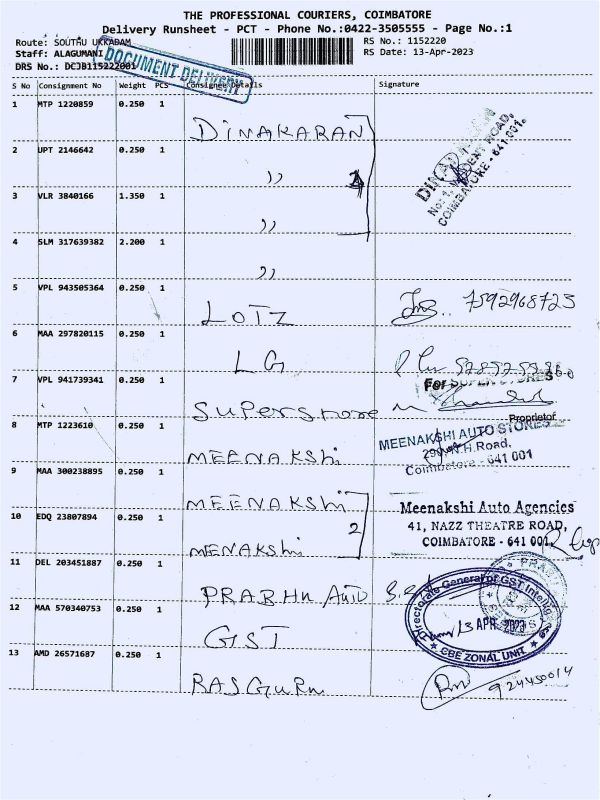 THE PROFESSIONAL COURIERS, COIMBATORE
Delivery Runsheet - PCT - Phone No.:0422-3505555 - Page No.:1
Route: SOUTH UKKADAM
Staff: ALAGUMANI
DRS No.: DCJB115222001
RS No.: 1152220
RS Date: 13-Apr-2023
DOCUMENT DELIVERY
S No Consignment No Weight PCS Consignee Details Signature
1 MTP 1220859 0.250 1
DINAKARAN
2 UPT 2146642 0.250 1
,,
3 VLR 3840166 1.350 1
,,
4 SLM 317639382 2.200 1
,,
COIMBATORE - 641 001.
5 VPL 943505364 0.250 1
LOTZ 7592968725
6 MAA 297820115 0.250 1
LG
7 VPL 941739341 0.250 1
Superstore
For SUPER STORES
Proprietor
8 MTP 1223610 0.250 1
MEENAKShi
MEENAKSHI AUTO STORES
N.H.Road,
Coimbatore - 641 001
9 MAA 300238895 0.250 1
MEENAKShi
10 EDQ 23807894 0.250 1
MENAKShi
2
Meenakshi Auto Agencies
41, NAZZ THEATRE ROAD,
COIMBATORE - 641 001.
11 DEL 203451887 0.250 1
PRABHU Auto
12 MAA 570340753 0.250 1
GST
Directorate General of GST Intelligence
13 APR 2023
CBE ZONAL UNIT
13 AMD 26571687 0.250 1
RASGURU